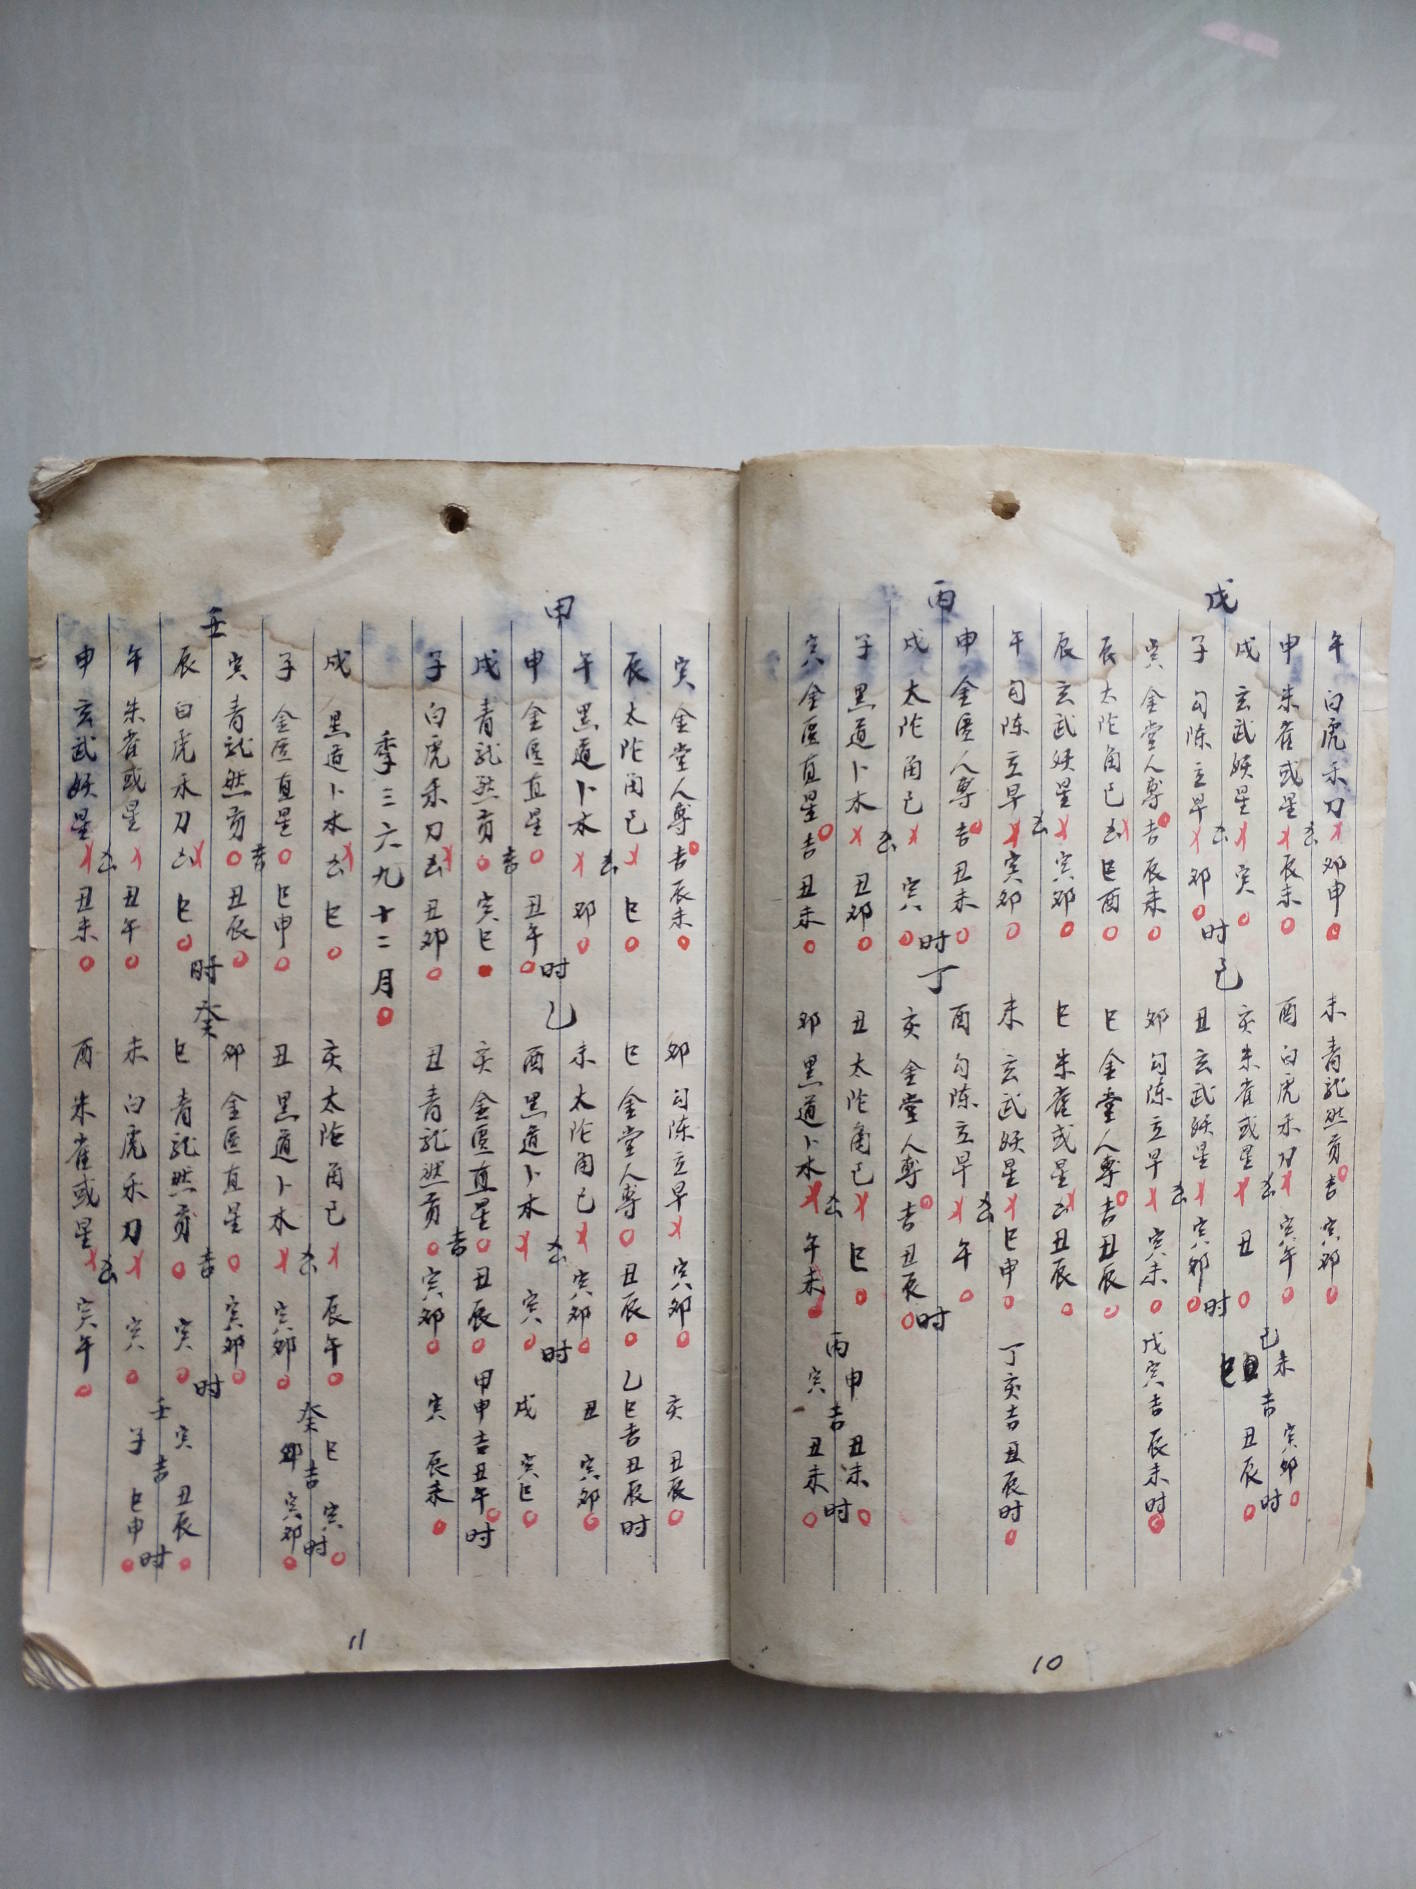 戊
午 白虎禾刀 卯申
未 青龙然贡 吉 寅卯
申 朱雀或星 凶 辰未
酉 白虎禾刀 寅午
己未 吉 寅卯 时
戌 玄武妖星 寅
亥 朱雀或星 凶 丑
丑辰
子 勾陈立早 凶 卯 时
己
丑 玄武妖星 寅卯 时
寅 金堂人專 吉 辰未
卯 勾陈立早 凶 寅未
戊寅吉辰未时
辰 太陀角已 凶 巳酉
巳 金堂人專 吉 丑辰
辰 玄武妖星 寅卯
巳 朱雀或星 凶 丑辰
丙
午 勾陈立早 凶 寅卯
未 玄武妖星 巳申
丁亥吉丑辰时
申 金匿人專 吉 丑未
酉 勾陈立早 凶 午
时
丁
戌 太陀角已 寅
亥 金堂人專 吉 丑辰
时
子 黑道卜木 凶 丑卯
丑 太陀角已 巳
丙申 吉 丑未 时
寅 金匿直星 吉 丑未
卯 黑道卜木 凶 午未
寅 丑未
10
寅 金堂人專 吉 辰未
卯 勾陈立早 寅卯
亥 丑辰
辰 太陀角已 巳
巳 金堂人專 丑辰
乙巳吉丑辰时
甲
午 黑道卜木 凶 卯
未 太陀角已 寅卯
丑 寅卯
时
乙
申 金匿直星 丑午
酉 黑道卜木 凶 寅
时
戌 寅巳
戌 青龙然贡 吉 寅巳
亥 金匿直星 丑辰
甲申吉丑午时
子 白虎禾刀 凶 丑卯
丑 青龙然贡 吉 寅卯
寅 辰未
季三六九十二月
戌 黑道卜木 凶 巳
亥 太陀角已 辰午
癸巳 吉 寅 时
子 金匿直星 巳申
丑 黑道卜木 凶 寅卯
卯 寅卯
壬
寅 青龙然贡 吉 丑辰
卯 金匿直星 寅卯
时
癸
辰 白虎禾刀 凶 巳
巳 青龙然贡 吉 寅
时
寅 丑辰
午 朱雀或星 丑午
未 白虎禾刀 寅
壬子 吉 巳申 时
申 玄武妖星 凶 丑未
酉 朱雀或星 凶 寅午
11